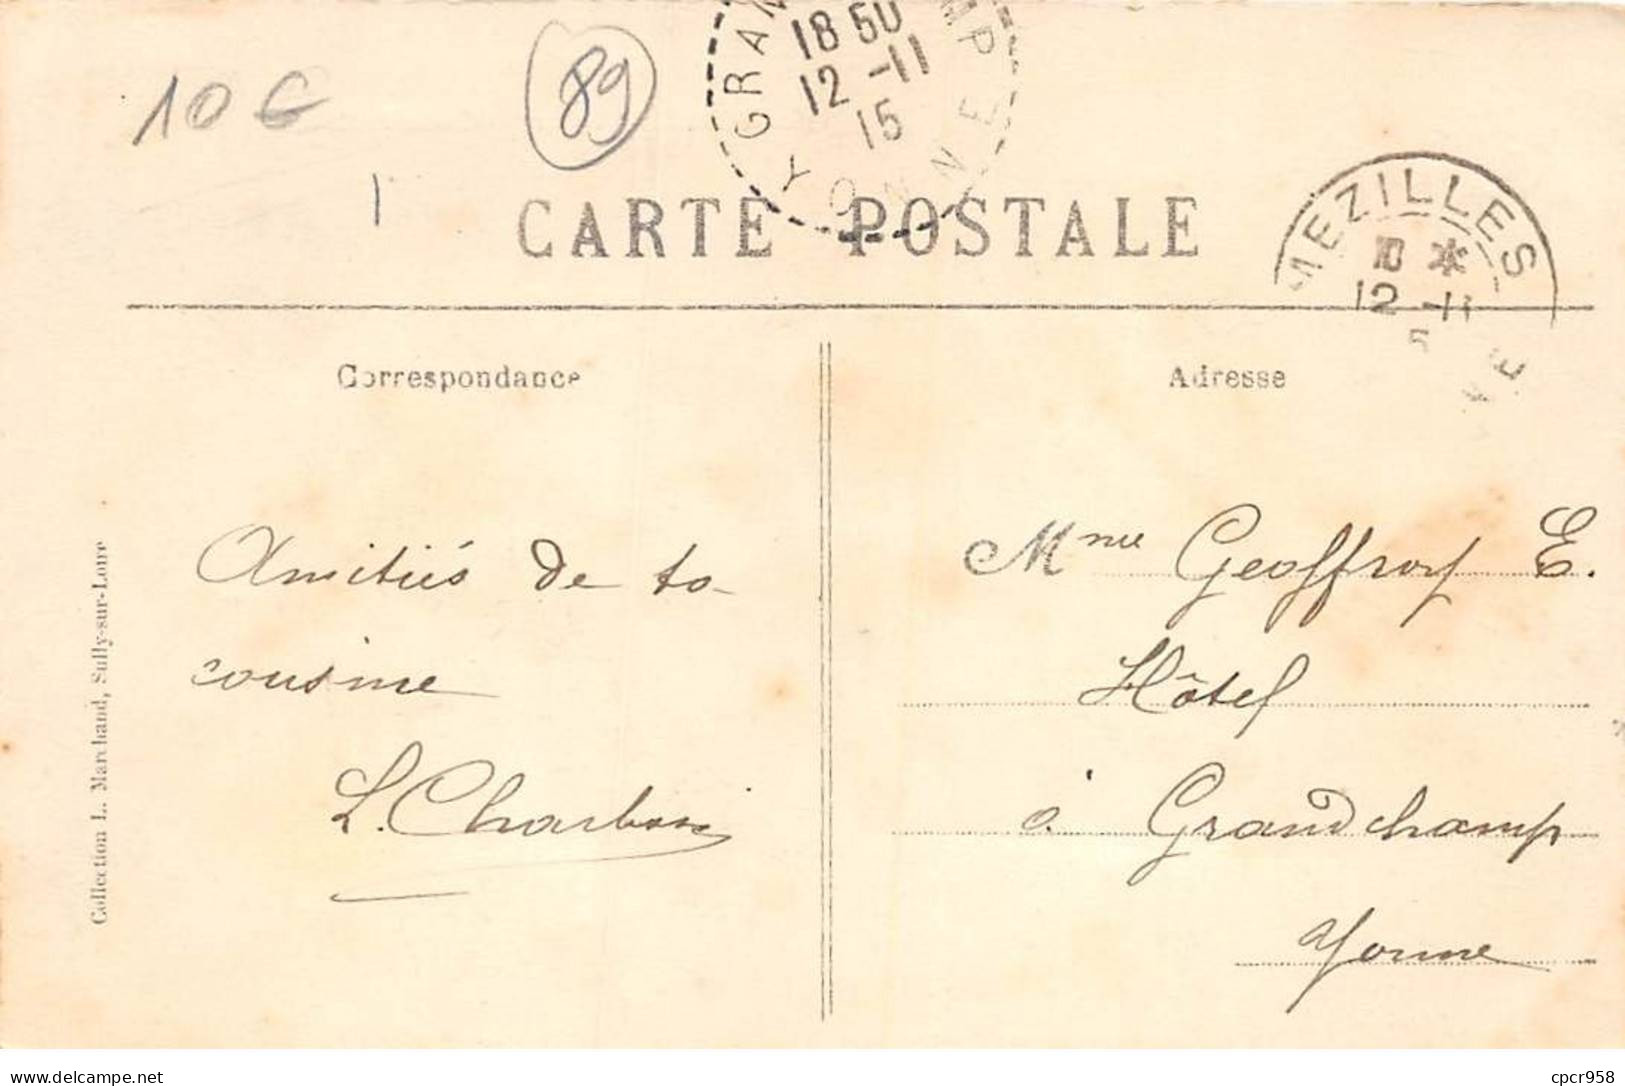 10 €
89
GRAN MP
18 50
12 -11
15
YONNE
CARTE POSTALE
MEZILLES
10 *
12 -11
5
Correspondance
Adresse
Amitiés de ta
cousine
L. Charbois
Mme Geoffroy E.
Hôtel
à Grandchamp
Yonne
Collection L. Marchand, Sully-sur-Loire
delcampe.net
cpcr958